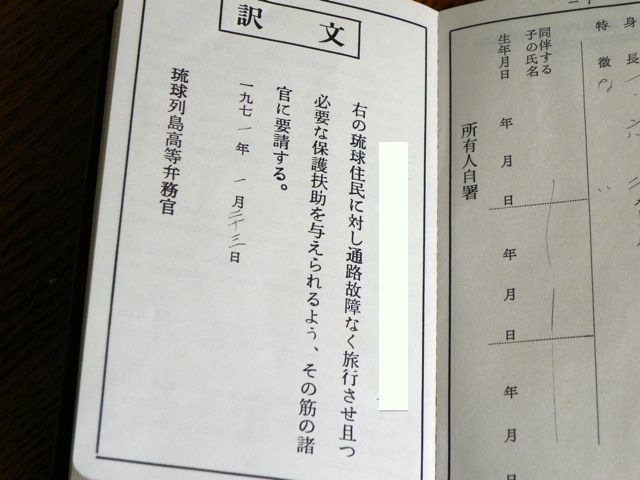 身長
特徴 なし
同伴する
子の氏名
生年月日
年 月 日
年 月 日
年 月
所有人自署
訳文
右の琉球住民に対し通路故障なく旅行させ且つ
必要な保護扶助を与えられるよう、その筋の諸
官に要請する。
一九七一年一月二十三日
琉球列島高等弁務官